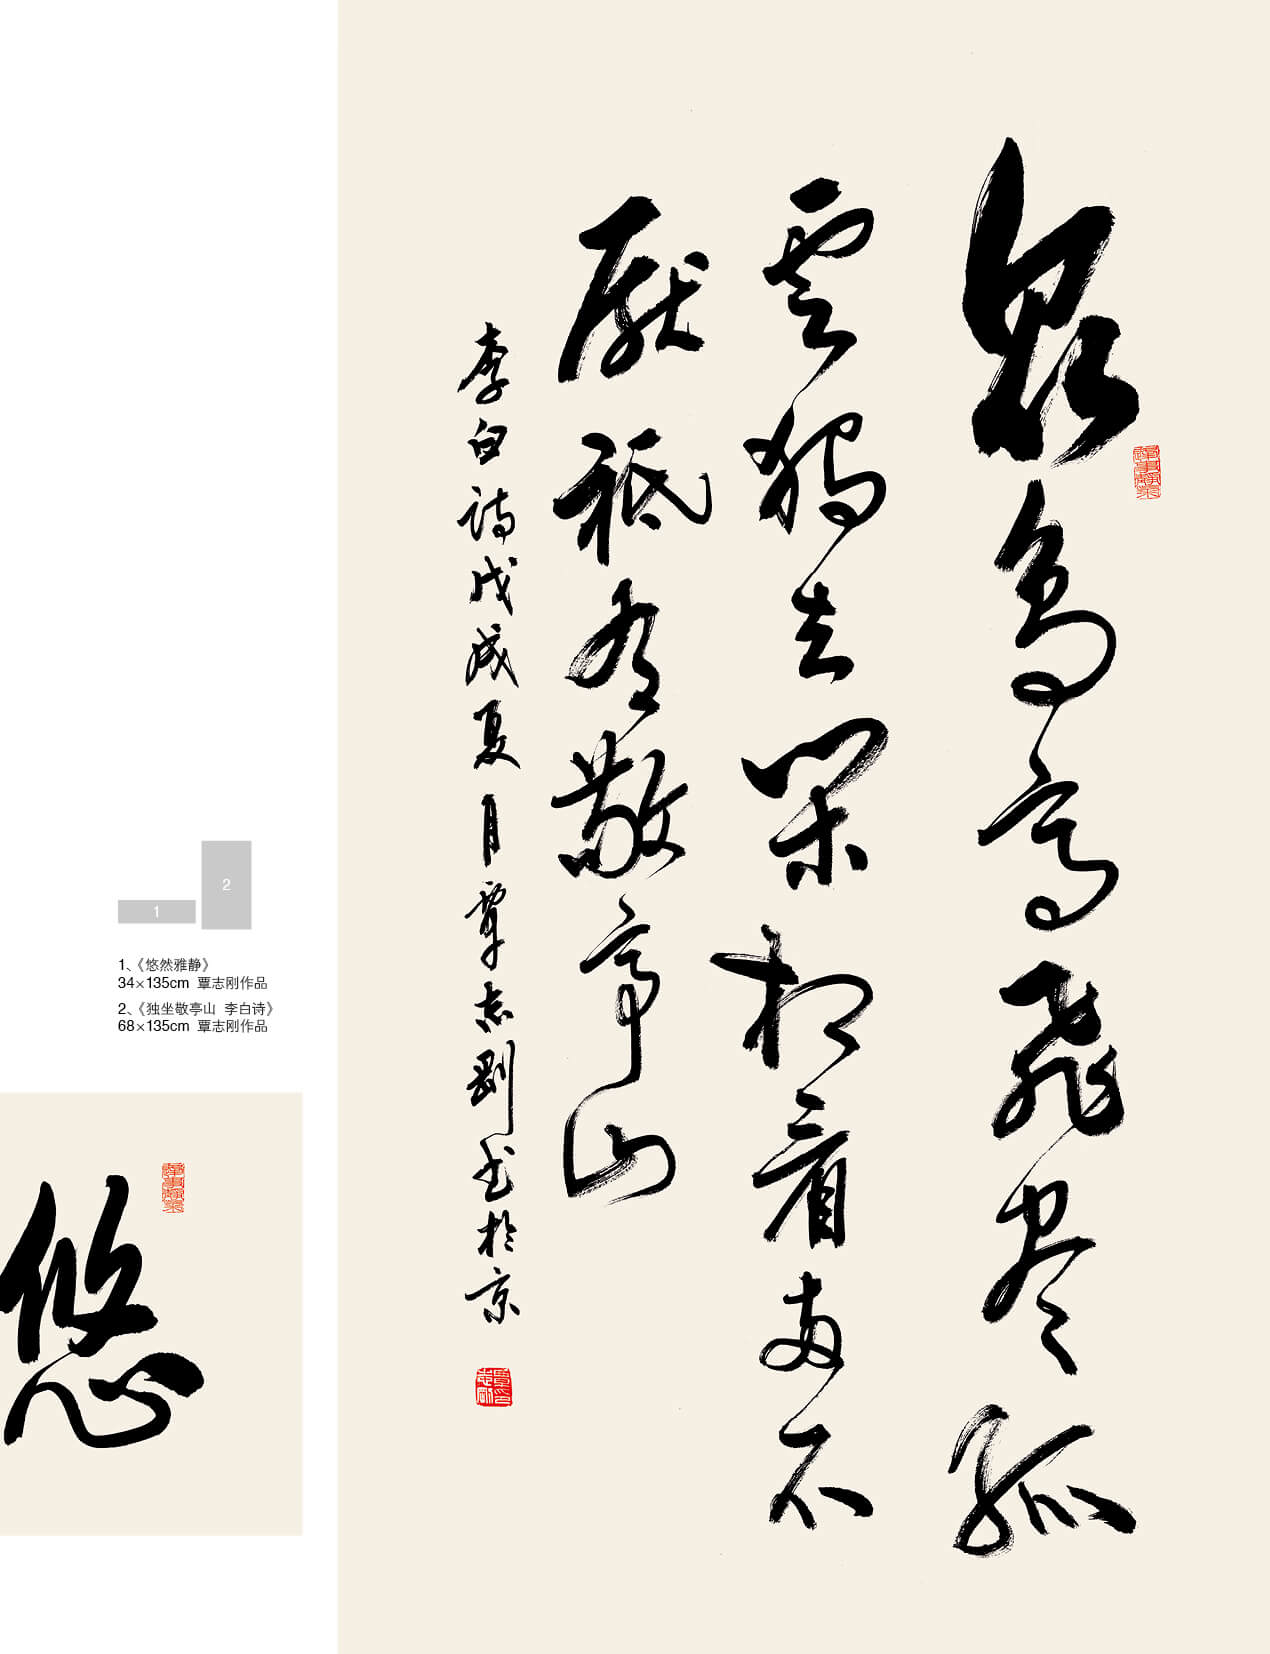 眾鳥高飛尽孤
雲獨去閑相看兩不
厭祗有敬亭山
李白詩戊戌夏月覃志剛书於京
1 2
1、《悠然雅静》
34×135cm 覃志刚作品
2、《独坐敬亭山 李白诗》
68×135cm 覃志刚作品
悠